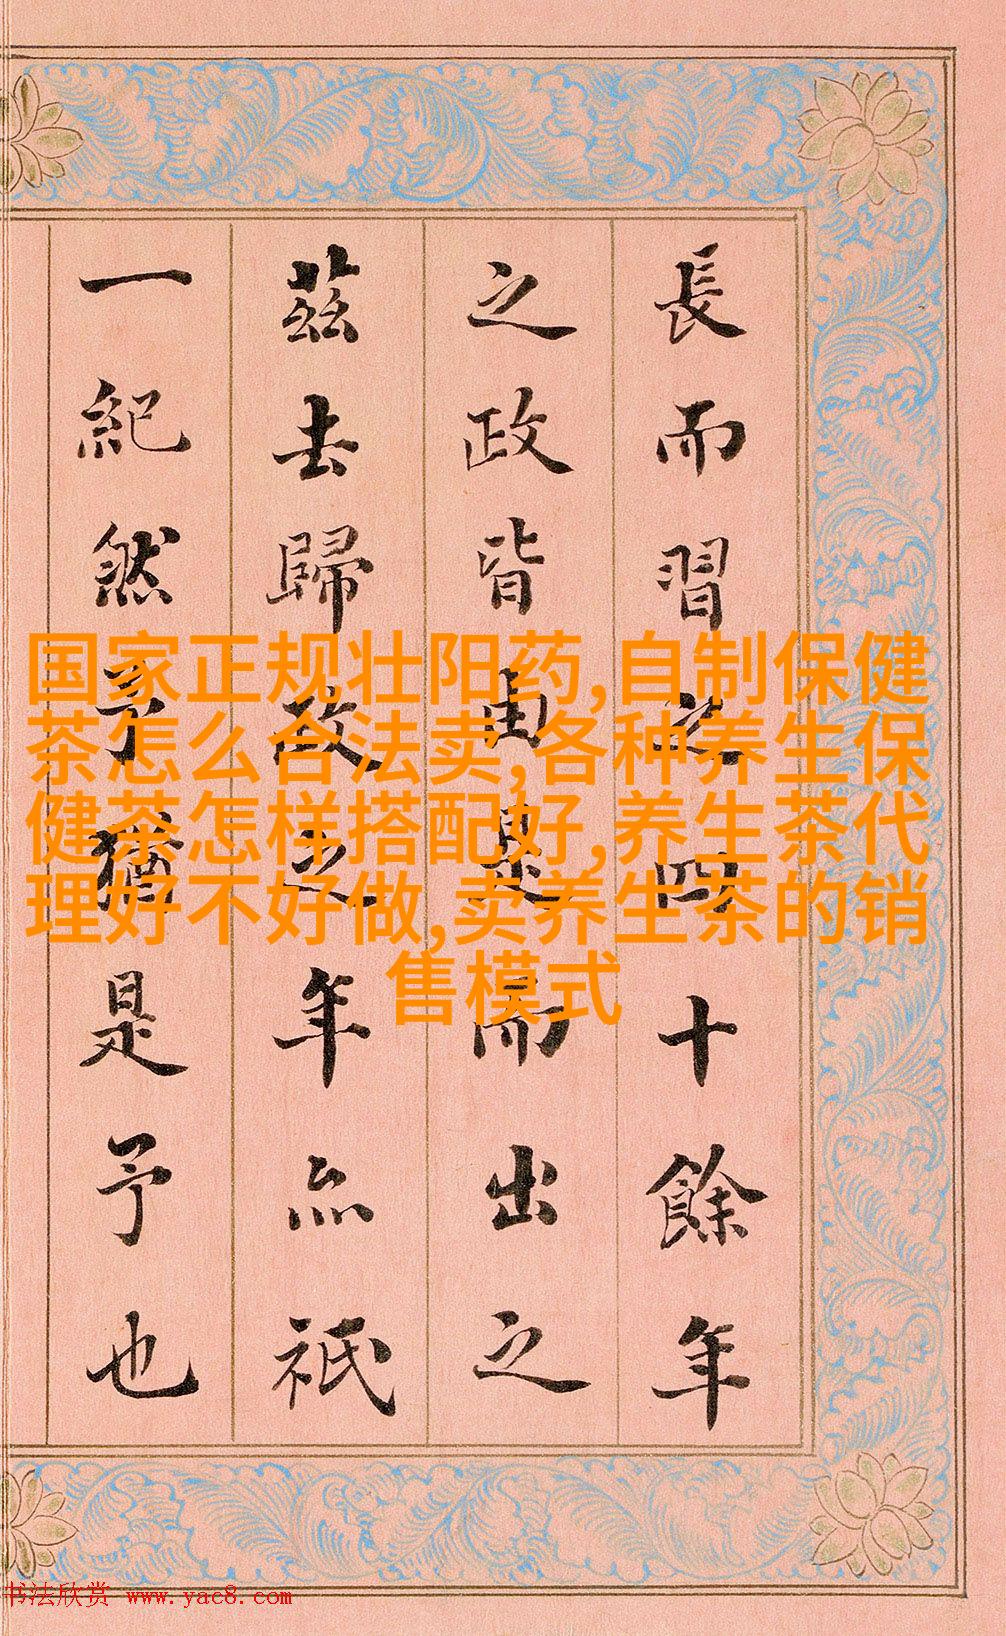 長而習之四十餘年
之政皆由是而出之
茲去歸政之年亦祇
一紀然予猶是予也
国家正规壮阳药,自制保健
茶怎么合法卖,各种养生保
健茶怎样搭配好,养生茶代
理好不好做,卖养生茶的销
售模式
书法欣赏 www.yac8.com